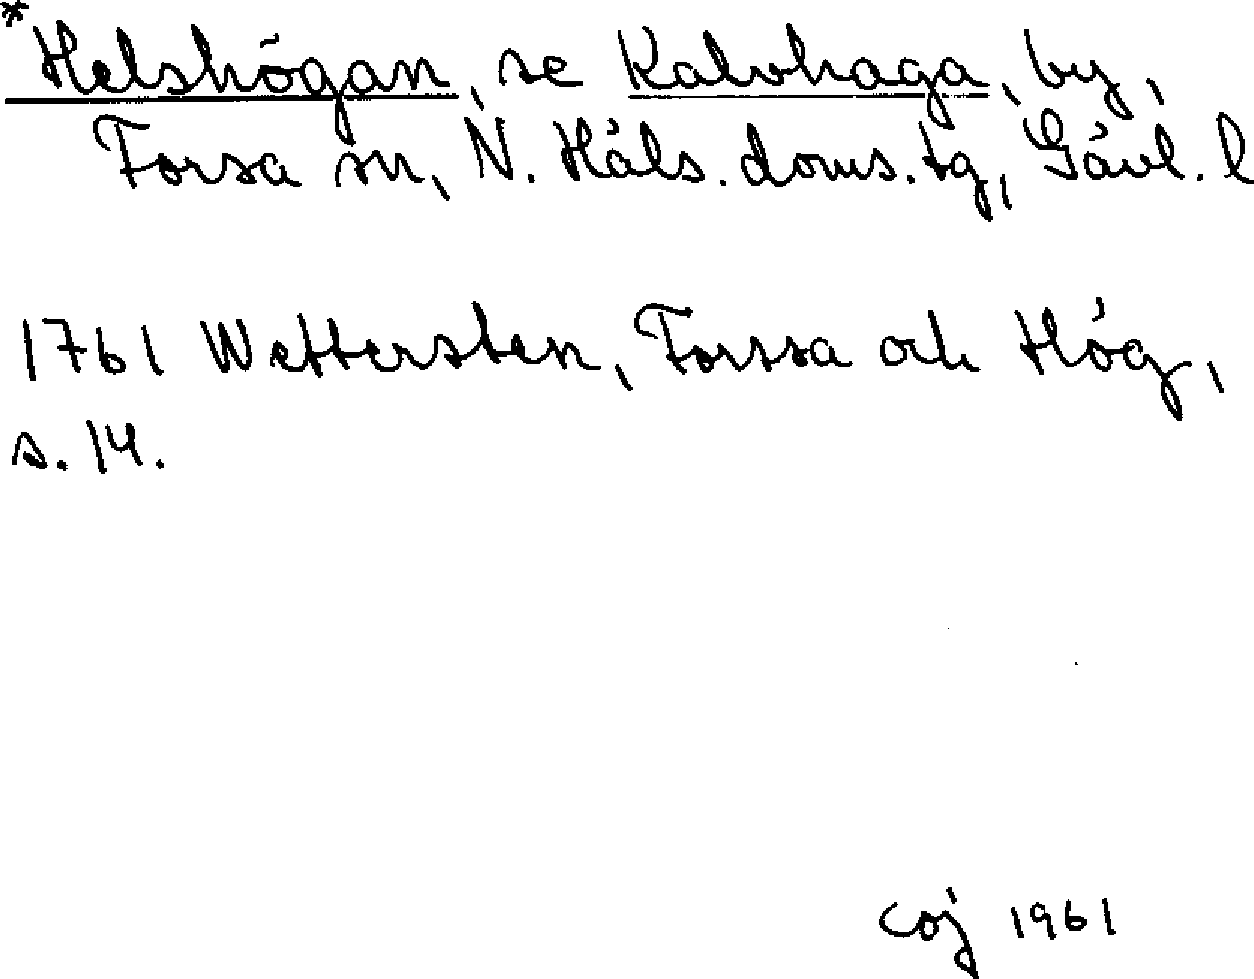 *Helshögan, se Kalvhaga, by,
Forsa sn, N. Häls. doms. tg, Gävl. l
1761 Wettersten, Forssa och Hög,
s. 14.
coj 1961